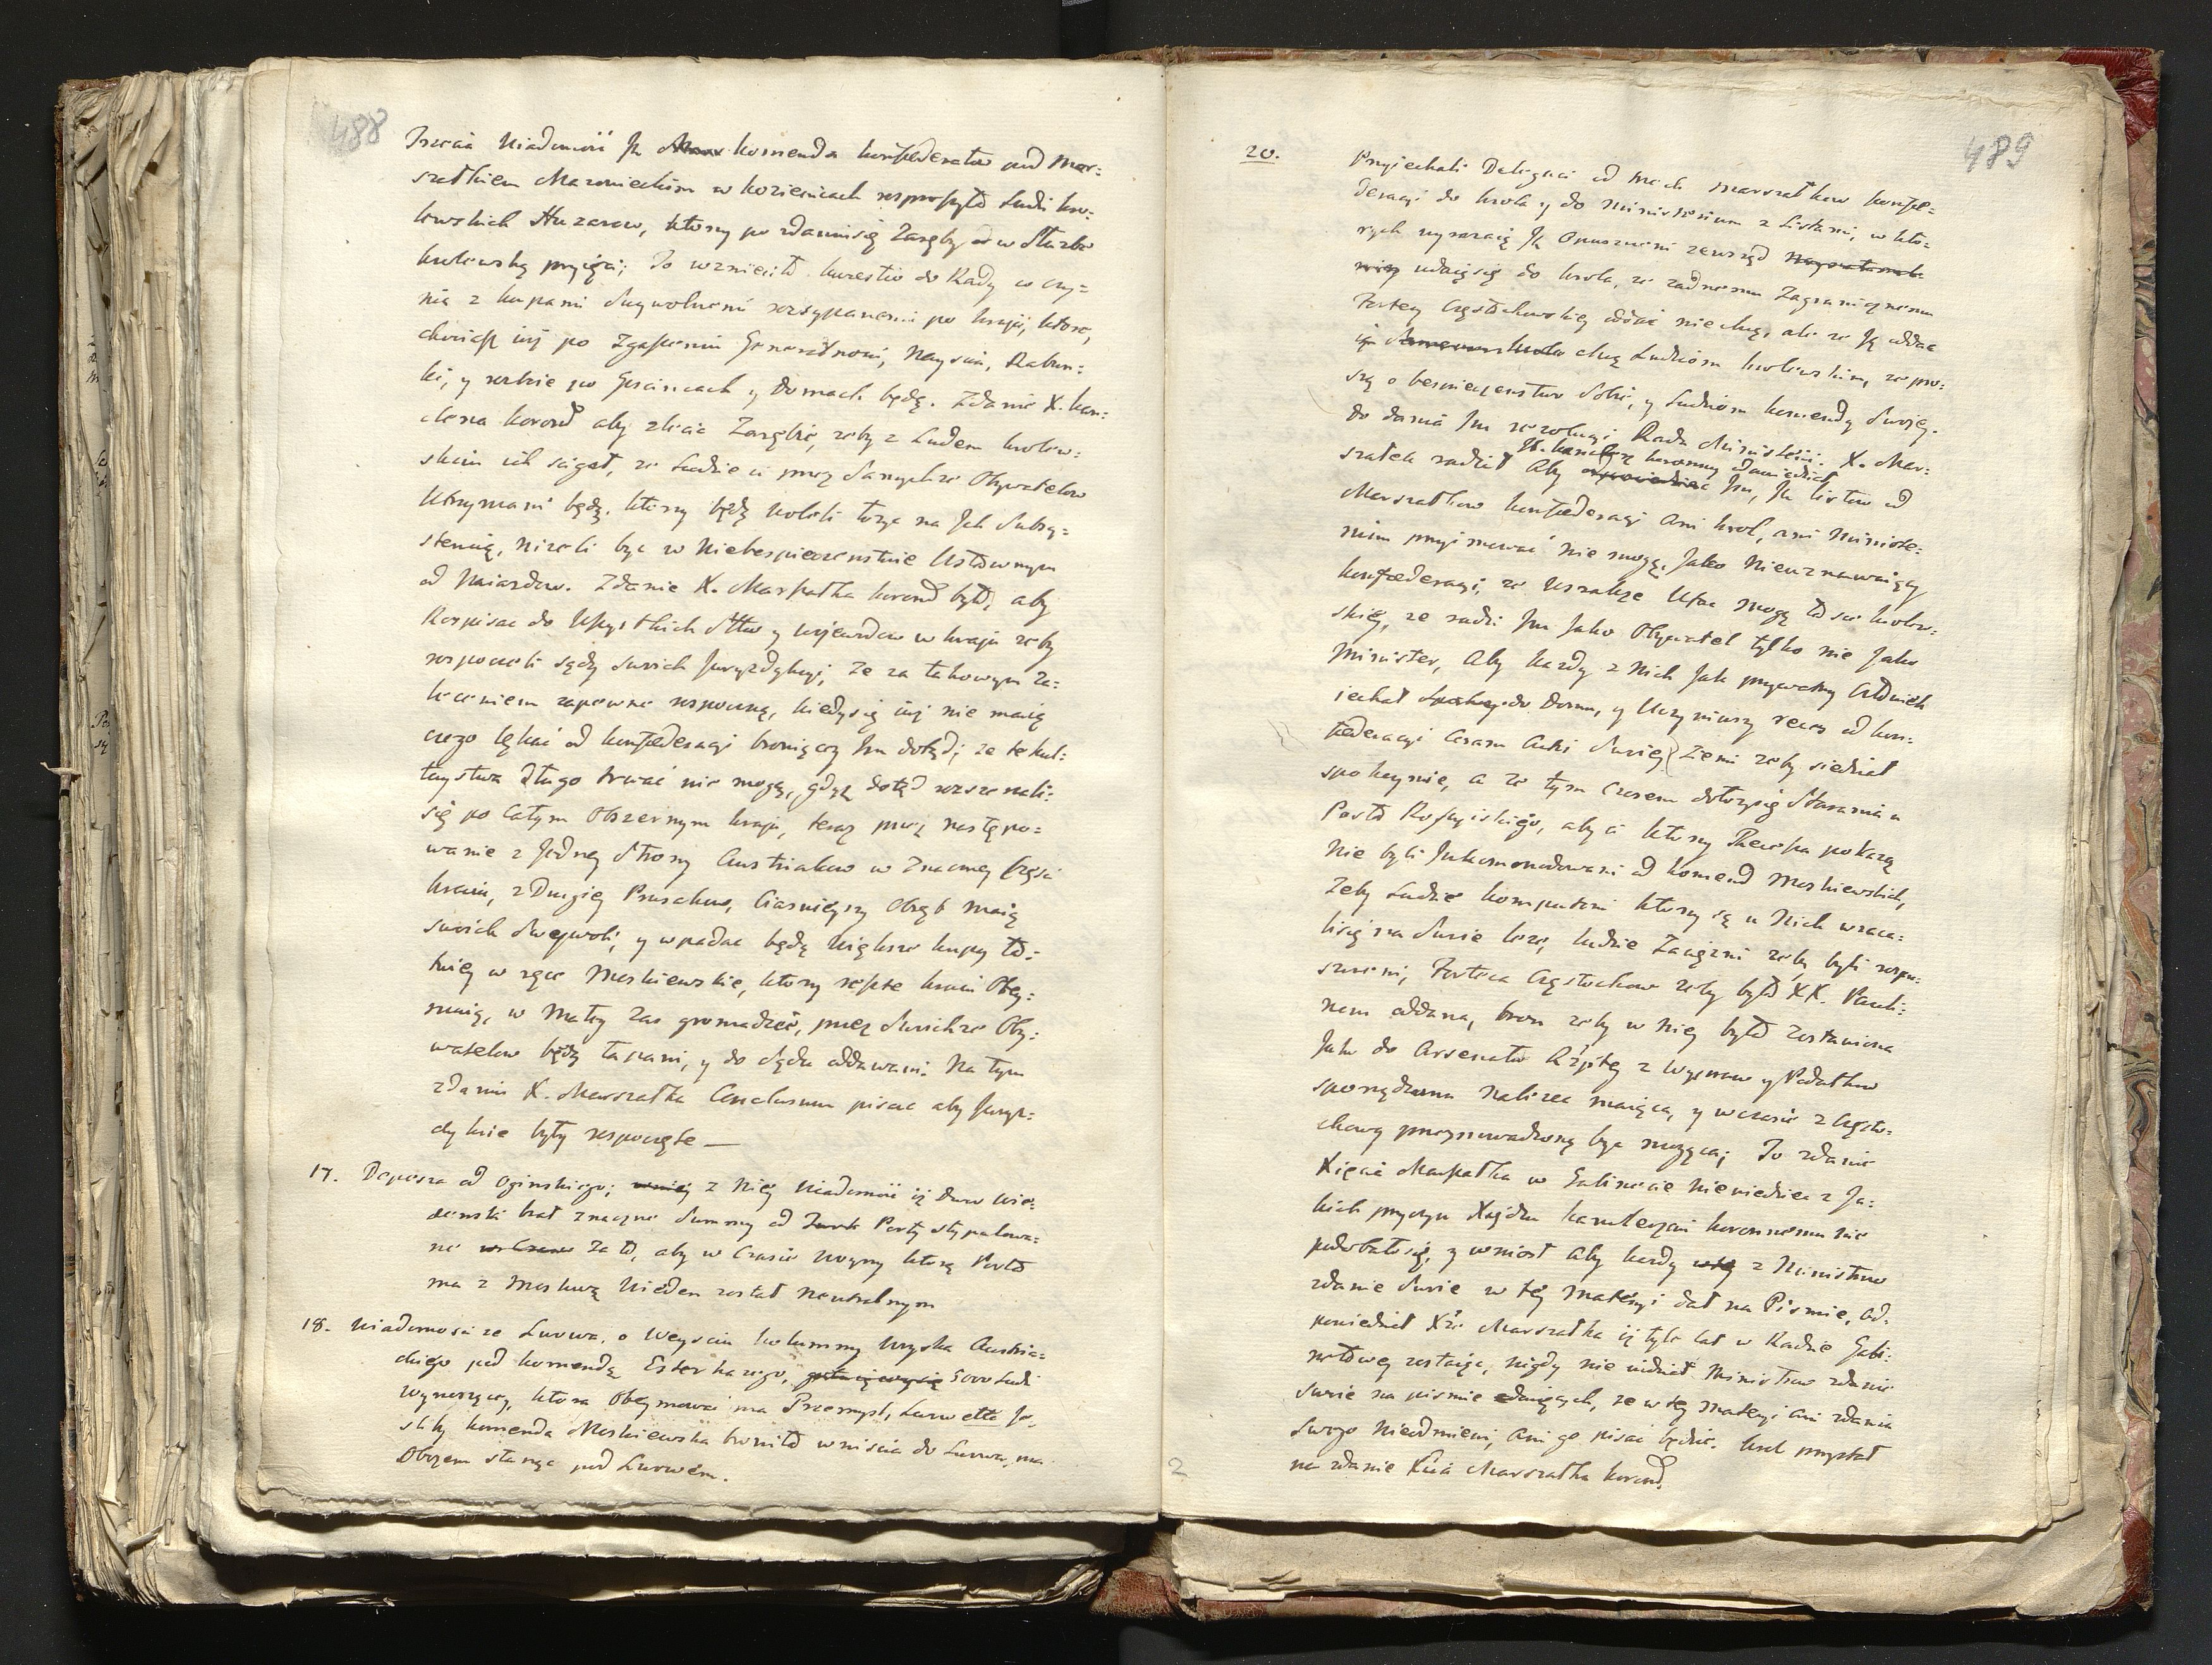 488
Trzecia Wiadomość Jż komenda konfederatow pod Mar=
szałkiem Mazowieckim w kozienicach rosproszyła Ludzi kro=
lewskich Huzarow, ktorzy po zdaniusię Zaręby w Służbe
krolewską przyięci; To wznieciło kwestio do Rady co czy=
nic z kupami Swywolnemi rozsypanemi po kraju, ktore,
chociasz iuż po Zgaszeniu Generalnosci, Nayscia, Rabun=
ki, y rozboie po Gościncach y Domach będą. Zdanie X. kan=
clerza koronð aby zlecic Zarębie, zeby z Ludem krolew=
skim ich scigał, ze Ludzie ci przez Samychze Obywatelow
Utrzymani będą, ktorzy będą woleli łozyc na Jch Subsy=
stencią, nizeli byc w Niebespieczenstwie Ustawnym
od Naiazdow. Zdanie X. Marszałka koronð było, aby
Rozpisac do Wszystkich Sttw y Wojewodow w kraju zeby
rozpoczeli sądy swoich Juryzdykcyi, ze za takowym Za=
leceniem zapewne rospoczną, kiedysię iuż nie maią
czego lękać od konfederacyi broniącey Jm dotąd; ze te hul=
taystwa długo trwać nie mogą, gdyż dotąd rozszerzali=
się po całym Obszernym kraju, teraz przez następo=
wanie z Jedney Strony Austriakow w Znaczney części
kraiu, z Drugiey Prusakow, Ciasnieyszy Obręb maią
swoich Swywoli, y wpadac będą większe kupy ła=
twiey w ręce Moskiewskie, ktorzy reszte kraiu Obey=
muią, w Małey Zas gromadzie, przez Swoichze Oby=
watelow będą łapani, y do Sądu oddawani. Na tym
zdaniu X. Marszałka Conclusum pisac aby Juryz=
dykcie były rospoczęte —
17. Depesza od Oginskiego; z Niey Wiadomosc iż Dwor Wie=
denski brał znaczne Summy od Porty stypulowa=
ne za to, aby w Czasie Woyny ktorą Porta
ma z Moskwą Wieden został Neutralnym
18. Wiadomosc ze Lwowa, o Weysciu kolumny Woyska Austria=
ckiego pod komendą Esterhazego, 5000 Ludzi
wynoszącey, ktora Obeymowac ma Przemysl, Lwow etta Je=
sliby komenda Moskiewska broniła wniscia do Lwowa, ma
Obozem stanąc pod Lwowem.
2
489
20. Przyiechali Delegaci od trzech Marszałkow konfe=
deracyi do krola y do Ministerium z Listami, w kto=
rych wyrazaią Jż Opuszczeni zewsząd
udaią się do krola, ze zadnemu Zagranicznemu
Fortecy Częstochowskiey oddac niechcą, ale ze Ją oddac
chcą Ludziom krolewskim, ze pro=
szą o bespieczenstwo Sobie, y Ludziom komendy Swojey.
Do dania Jm rezolucyi Rada Ministeri. X. Mar=
szałek radził Aby JX. kanclerz koronny odpowiedział Jm, Jż listow od
Marszałkow konfederacyi Ani krol, ani Ministe=
rium przyimować nie mogą, Jako Nieuznawaiący
konfederacyi, ze Wszakze Ufac mogą łasce krolew=
skiey, ze radzi Jm Jako Obywatel tylko nie Jako
Minister, Aby kazdy z Nich Jak prywatny Człowiek
iechał do Domu, y Uczyniwszy reces od kon=
federacyi coram Actis Swoiey Ziemi zeby siedział
spokoynie, a ze tym czasem dołozysię Starania u
Posła Rossyiskiego, aby ci ktorzy Recessa pokazą
Nie byli Jnkommodowani od komend Moskiewskich,
Zeby Ludzie komputowi ktorzy są u Nich wraca=
lisię na Swoie leze, ludzie Zaciężni zeby byli rospu=
szczeni, Forteca Częstochow zeby była XX. Pauli=
nom oddana, bron zeby w Niey była Zostawiona
Jako do Arsenału Rzptey z Wypraw y Podatkow
sporządzona nalezec maiąca, y w czasie z Często=
chowy przeprowadzoną byc mogąca; To zdanie
Xięcia Marszałka w Gabinecie Niewiedziec z Ja=
kich przyczyn Xiędzu kanclerzowi koronnemu nie
podobałosię, y wniosł Aby kazdy z Ministrow
zdanie Swoie w tey materyi dał na Pismie, od=
powiedział Xże Marszałka iż tyle lat w Radzie Gabi=
netowey zostaiąc, nigdy nie widział Ministrow zdanie
swoie na pismie daiących, ze w tey Materyi Ani zdania
Swego Nieodmieni, Ani go pisac będzie. krol przystał
na zdanie Xcia Marszałka koronð.